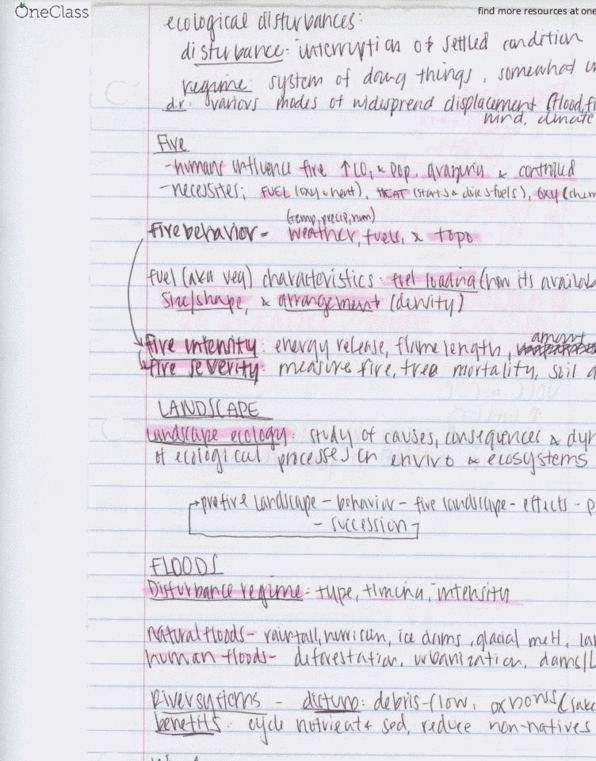 OneClass
find more resources at one
ecological disturbances:
disturbance: interruption of settled condition
regime: system of doing things, somewhat
d.r. various modes of widespread displacement (flood, fi
wind, climate
Fire
-humans influence fire ↑CO₂ & pop. grazing & controlled
-necessites: FUEL (oxy+heat), HEAT (starts & dries fuels), OXY (chem
(temp, precip, hum)
fire behavior = weather, fuels, & topo
fuel (aka veg) characteristics: fuel loading (how its availab
size/shape, & arrangement (density)
amount
fire intensity: energy release, flame length,
fire severity: measure fire, tree mortality, soil
LANDSCAPE
Landscape ecology: study of causes, consequences & dyn
of ecological processes on enviro & ecosystems
prefire landscape - behavior - fire landscape - effects - p
- succession
FLOODS
Disturbance regime: type, timing, intensity
natural floods - rainfall, hurrican, ice dams, glacial melt, lan
human floods - deforestation, urbanization, dams/L
River systems - disturb: debris-flow, oxbows (lake
benefits: cycle nutrient & sed, reduce non-natives